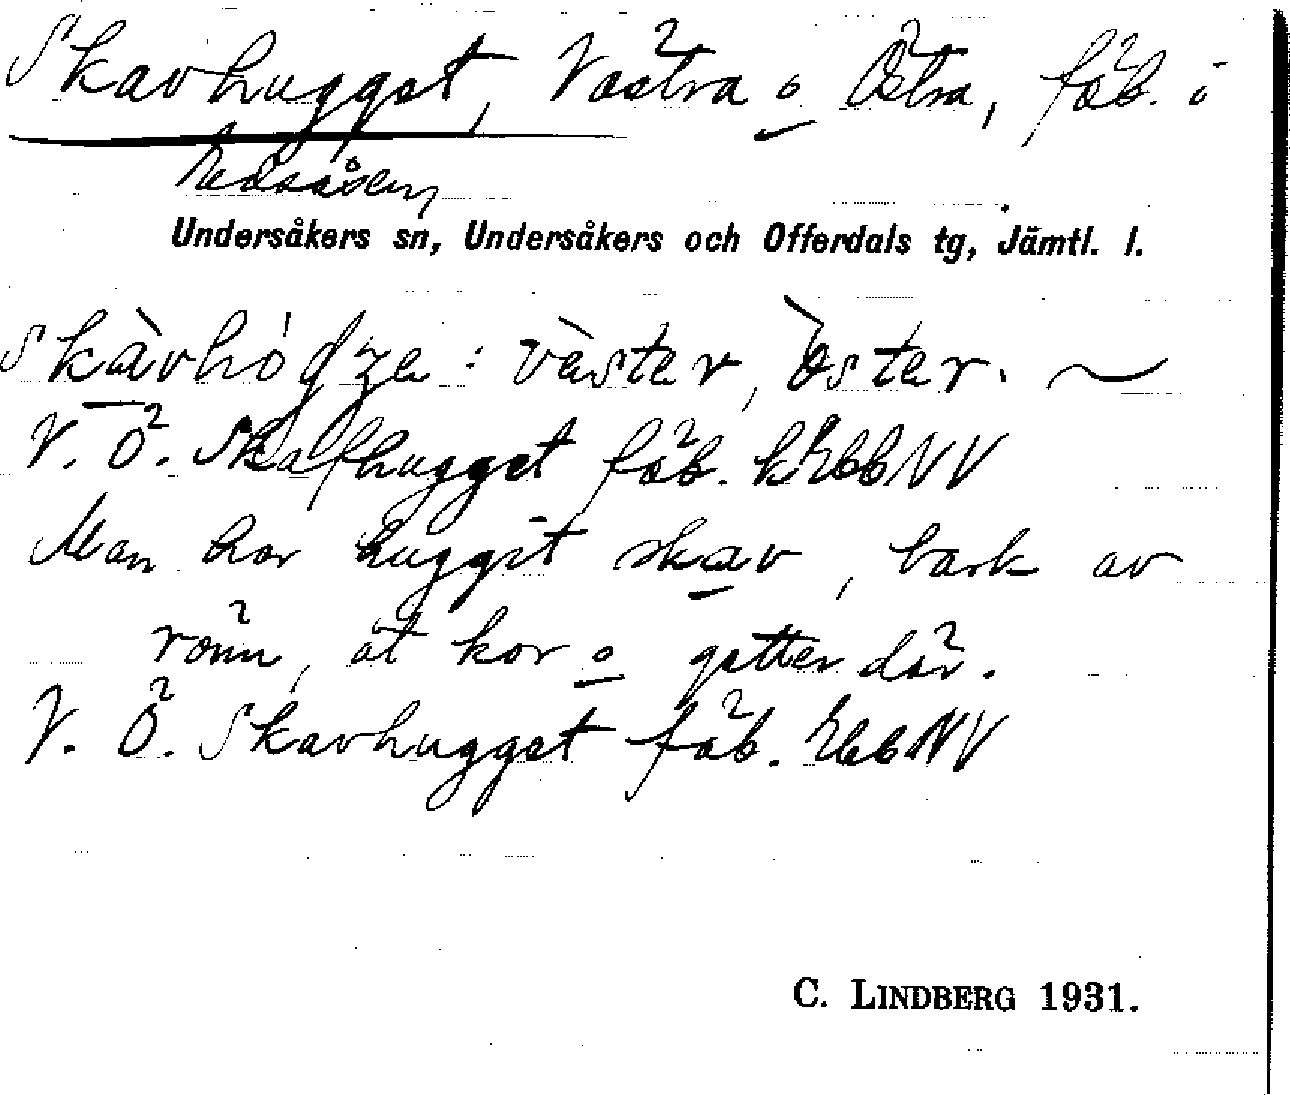 Skavhugget, Västra o Östra, fäb. i
Undersåkers sn, Undersåkers och Offerdals tg, Jämtl. l.
väster, öster. ~
V. Ö. Skalfhugget fäb. NV
Man har huggit skav, bark av
rönn, åt kor o getter där.
V. Ö. Skavhugget fäb. NV
C. LINDBERG 1931.